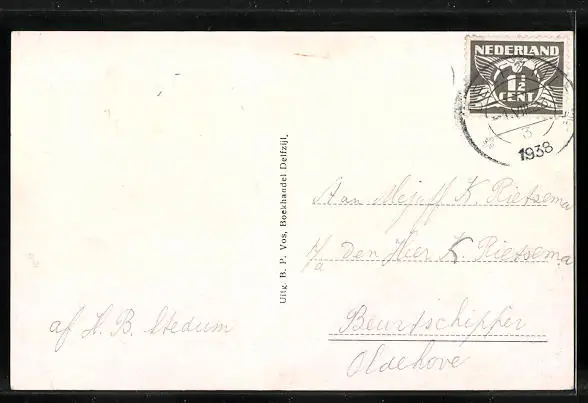 NEDERLAND
1½
CENT
3
1938
Uitg. B. P. Vos, Boekhandel Delfzijl.
Aan Mejuff K. Rietsema
P/a den Heer K. Rietsema
Beurtschipper
Oldehove
af H. B. Stedum